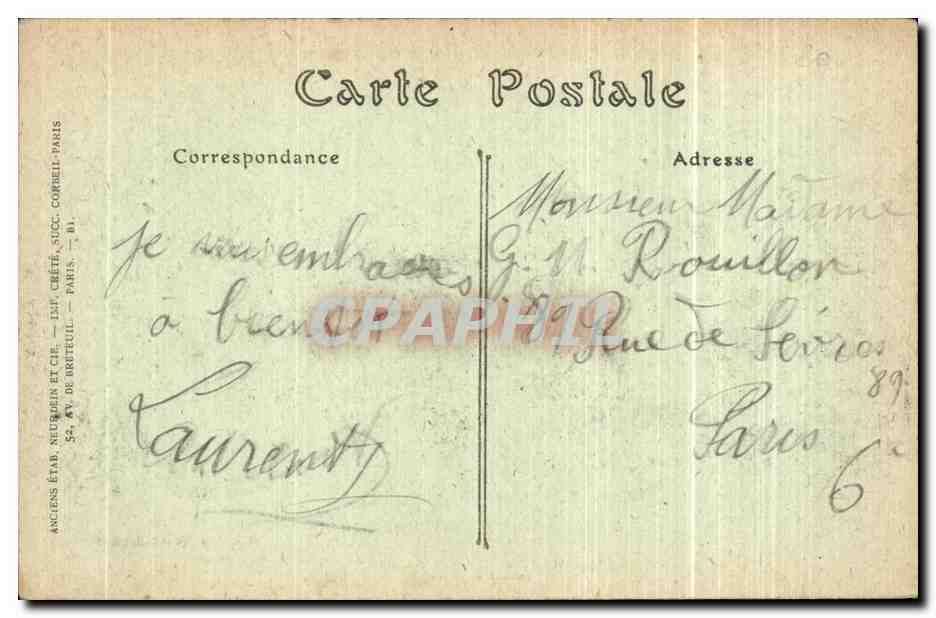 Carte Postale
Correspondance
je vous embrasse
à bientôt
Laurent
Adresse
Monsieur Madame
G. Rouillon
89 Rue de Sèvres
89
Paris
6e
ANCIENS ÉTAB. NEURDEIN ET CIE. — IMP. CRÉTÉ, SUCC. CORBEIL-PARIS
52, AV. DE BRETEUIL. — PARIS. — B1.
CPAPHIL